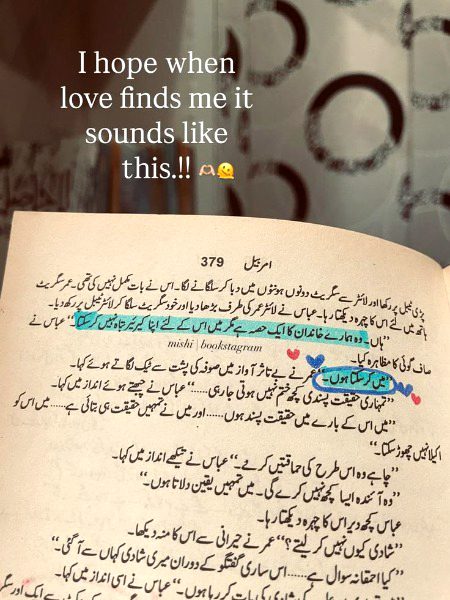 I hope when
love finds me it
sounds like
this.!! 🫶🏻🫠
امر بیل 379
پڑی ٹیبل پر رکھا اور لائٹر سے سگریٹ دونوں ہونٹوں میں دبا کر سلگانے لگا۔ اس نے بات مکمل نہیں کی تھی۔ عمر سگریٹ
ہاتھ میں لئے اس کا چہرہ دیکھتا رہا۔ عباس نے لائٹر عمر کی طرف بڑھا دیا اور خود سگریٹ سلگا کر لائٹر ٹیبل پر رکھ دیا۔
”ہاں۔ وہ ہمارے خاندان کا ایک حصہ ہے مگر میں اس کے لئے اپنا کیریئر تباہ نہیں کر سکتا“ عباس نے
mishi bookstagram
صاف گوئی کا مظاہرہ کیا۔
”میں کر سکتا ہوں۔“ عمر نے بے تاثر آواز میں صوفہ کی پشت سے ٹیک لگاتے ہوئے کہا۔
”تمہاری حقیقت پسندی کچھ ختم نہیں ہوتی جا رہی......“ عباس نے چبھتے ہوئے انداز میں کہا۔
”میں اس کے بارے میں حقیقت پسند ہوں...... اور میں نے تمہیں حقیقت ہی بتائی ہے...... میں اس کو
اکیلا نہیں چھوڑ سکتا۔“
”چاہے وہ اس طرح کی حماقتیں کرے۔“ عباس نے تیکھے انداز میں کہا۔
”وہ آئندہ ایسا کچھ نہیں کرے گی۔ میں تمہیں یقین دلاتا ہوں۔“
عباس کچھ دیر اس کا چہرہ دیکھتا رہا۔
”شادی کیوں نہیں کر لیتے؟“ عمر نے حیرانی سے اس کا منہ دیکھا۔
”کیا احمقانہ سوال ہے...... اس ساری گفتگو کے دوران میری شادی کہاں سے آ گئی۔“
شادی کی بات کر رہا ہوں۔“ عباس نے اسی انداز میں کہا۔